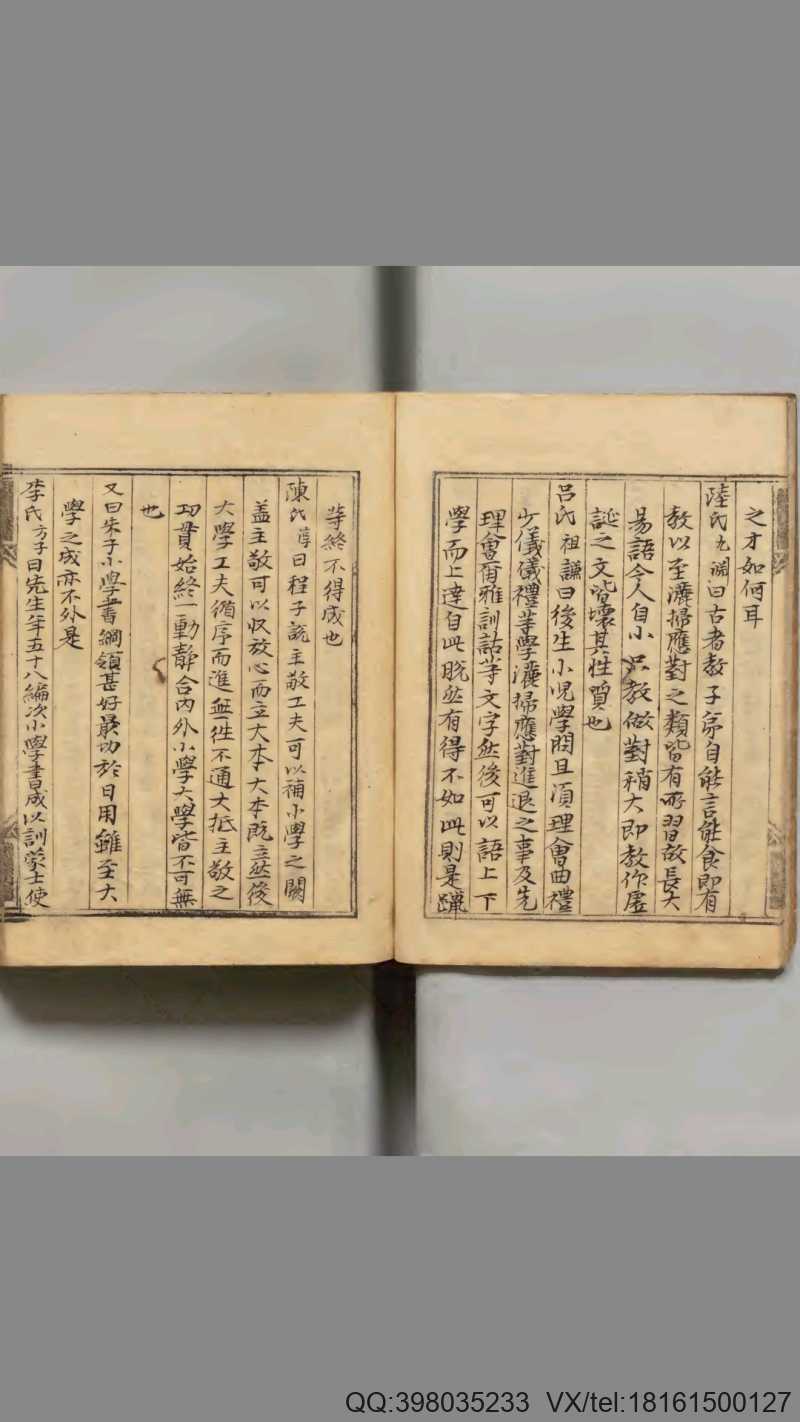 之才如何耳
陸氏九淵曰古者教子弟自能言能食即有
教以至灑掃應對之類皆有所習故長大
易語今人自小只教做對稍大即教作虛
誕之文皆壞其性質也
呂氏祖謙曰後生小児學問且湏理會曲禮
少儀儀禮等學灑掃應對進退之事及先
理會爾雅訓詁等文字然後可以語上下
學而上達自此脱然有得不如此則是躐
等終不得成也
陳氏淳曰程子說主敬工夫可以補小學之闕
盖主敬可以収放心而立大本大本既立然後
大學工夫循序而進無徃不通大抵主敬之
功貫始終一動靜合內外小學大學皆不可無
也
又曰朱子小學書綱領甚好㝡切於日用雖至大
學之成亦不外是
李氏方子曰先生年五十八編次小學書成以訓蒙士使
QQ:398035233 VX/tel:18161500127